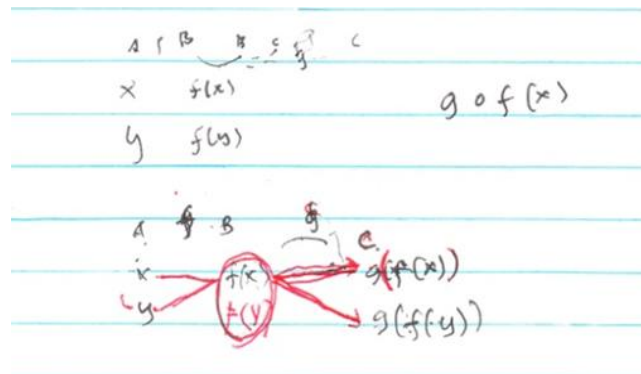 A f B B C g C
x f(x)
g o f(x)
y f(y)
A f B g C
x f(x) g(f(x))
y f(y) g(f(y))